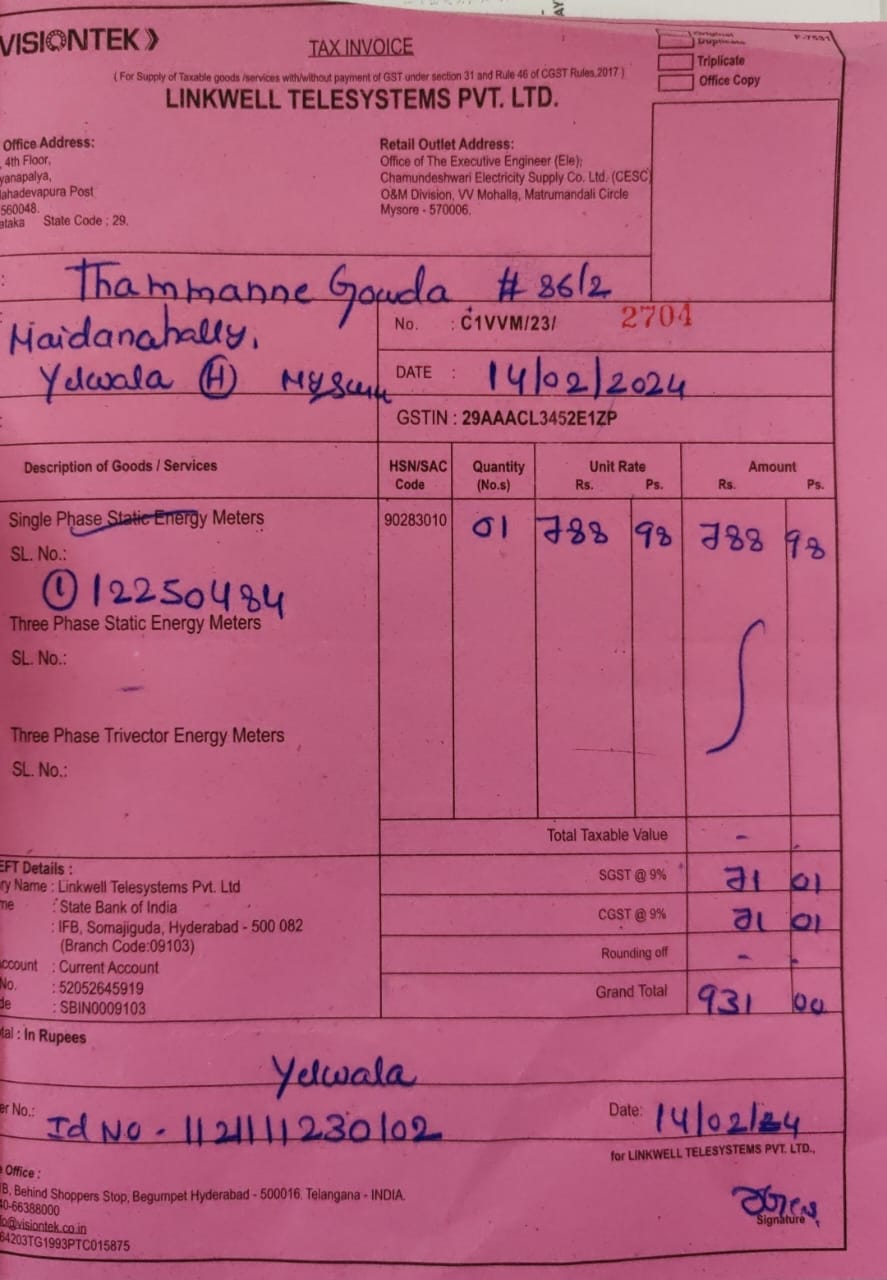 VISIONTEK
TAX INVOICE
( For Supply of Taxable goods /services with/without payment of GST under section 31 and Rule 46 of CGST Rules,2017 )
LINKWELL TELESYSTEMS PVT. LTD.
Original
Duplicate
Triplicate
Office Copy
Office Address:
4th Floor,
yanapalya,
ahadevapura Post
560048.
ataka State Code : 29.
Retail Outlet Address:
Office of The Executive Engineer (Ele);
Chamundeshwari Electricity Supply Co. Ltd. (CESC)
O&M Division, VV Mohalla, Matrumandali Circle
Mysore - 570006.
Thammanne Gowda # 86/2
Maidanahally,
Yelwala (H) Mysuru
No. : C1VVM/23/ 2704
DATE : 14/02/2024
GSTIN : 29AAACL3452E1ZP
Description of Goods / Services HSN/SAC Code Quantity (No.s) Unit Rate Rs. Ps. Amount Rs. Ps.
Single Phase Static Energy Meters 90283010 01 788 98 788 98
SL. No.:
① 12250484
Three Phase Static Energy Meters
SL. No.:
-
Three Phase Trivector Energy Meters
SL. No.:
Total Taxable Value -
EFT Details :
ry Name : Linkwell Telesystems Pvt. Ltd
me : State Bank of India
: IFB, Somajiguda, Hyderabad - 500 082
(Branch Code:09103)
ccount : Current Account
No. : 52052645919
de : SBIN0009103
SGST @ 9% 71 01
CGST @ 9% 71 01
Rounding off -
Grand Total 931 00
tal : In Rupees
Yelwala
er No.: Id No - 112111230102
Date: 14/02/24
for LINKWELL TELESYSTEMS PVT. LTD.,
Office :
B, Behind Shoppers Stop, Begumpet Hyderabad - 500016. Telangana - INDIA.
40-66388000
fo@visiontek.co.in
64203TG1993PTC015875
Signature